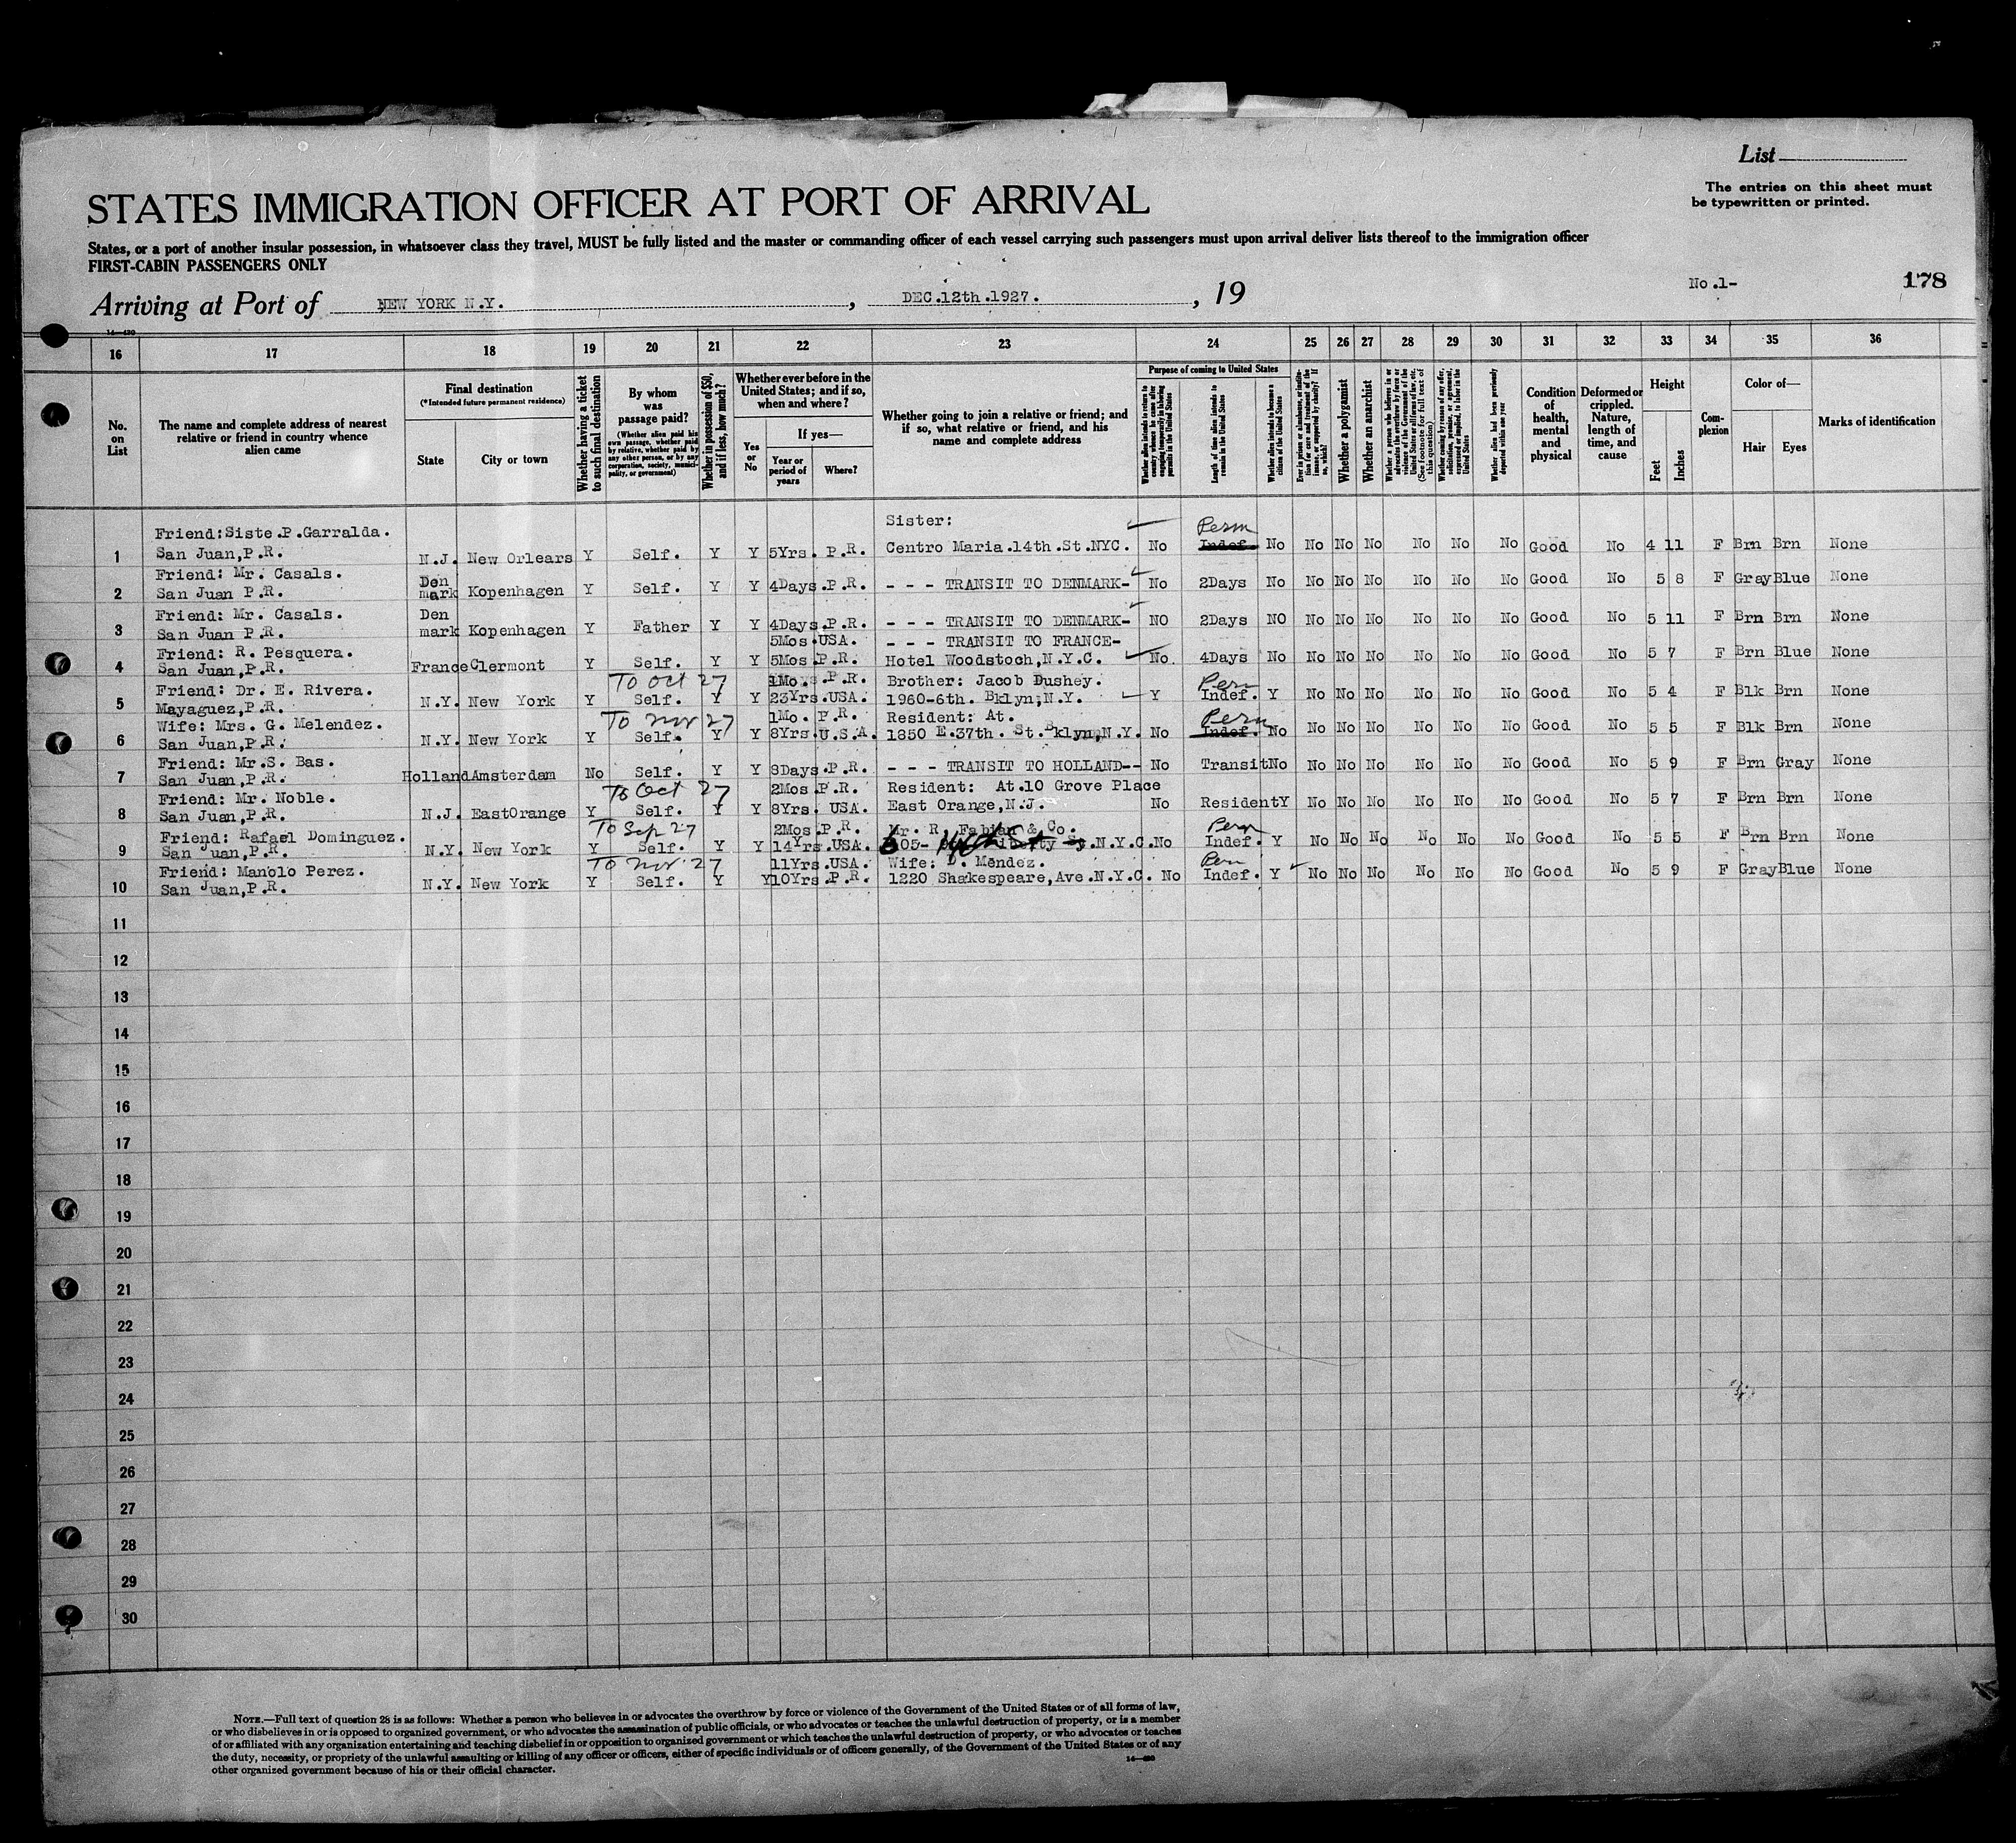 List
The entries on this sheet must
be typewritten or printed.
STATES IMMIGRATION OFFICER AT PORT OF ARRIVAL
States, or a port of another insular possession, in whatsoever class they travel, MUST be fully listed and the master or commanding officer of each vessel carrying such passengers must upon arrival deliver lists thereof to the immigration officer
FIRST-CABIN PASSENGERS ONLY
No.1- 178
Arriving at Port of NEW YORK N.Y. , DEC.12th.1927. , 19
14—430
16 17 18 19 20 21 22 23 24 25 26 27 28 29 30 31 32 33 34 35 36
No. on List
The name and complete address of nearest relative or friend in country whence alien came
Final destination
(*Intended future permanent residence)
State City or town
Whether having a ticket to such final destination
By whom was passage paid?
(Whether alien paid his own passage, whether paid by relative, whether paid by any other person, or by any corporation, society, municipality, or government)
Whether in possession of $50, and if less, how much?
Whether ever before in the United States; and if so, when and where?
Yes or No
If yes—
Year or period of years
Where?
Whether going to join a relative or friend; and if so, what relative or friend, and his name and complete address
Purpose of coming to United States
Length of time alien intends to remain in the United States
Whether alien intends to become a citizen of the United States
Whether a polygamist
Whether an anarchist
Whether alien had been previously deported within one year
Condition of health, mental and physical
Deformed or crippled. Nature, length of time, and cause
Height
Feet Inches
Complexion
Color of—
Hair Eyes
Marks of identification
Friend:Siste.P.Garralda. Sister: Perm
1 San Juan,P.R. N.J. New Orlears Y Self. Y Y 5Yrs. P.R. Centro Maria.14th.St.NYC. No Indef. No No No No No No No Good No 4 11 F Brn Brn None
Friend: Mr. Casals. Den
2 San Juan P.R. mark Kopenhagen Y Self. Y Y 4Days.P.R. - - - TRANSIT TO DENMARK- No 2Days No No No No No No No Good No 5 8 F Gray Blue None
Friend: Mr. Casals. Den
3 San Juan P.R. mark Kopenhagen Y Father Y Y 4Days.P.R. - - - TRANSIT TO DENMARK- NO 2Days NO No No No No No No Good No 5 11 F Brn Brn None
Friend: R. Pesquera. 5Mos.USA. - - - TRANSIT TO FRANCE-
4 San Juan,P.R. France Clermont Y Self. Y Y 5Mos.P.R. Hotel Woodstoch,N.Y.C. No. 4Days No No No No No No No Good No 5 7 F Brn Blue None
Friend: Dr. E. Rivera. To Oct 27 1Mo. P.R. Brother: Jacob Dushey. Per
5 Mayaguez,P.R. N.Y. New York Y Self. Y Y 23Yrs.USA. 1960-6th. Bklyn,N.Y. Y Indef. Y No No No No No No Good No 5 4 F Blk Brn None
Wife: Mrs. G. Melendez. To Nov 27 1Mo. P.R. Resident: At. Perm
6 San Juan,P.R. N.Y. New York Y Self. Y Y 8Yrs.U.S.A. 1850 E.37th. St.Bklyn,N.Y. No Indef. No No No No No No No Good No 5 5 F Blk Brn None
Friend: Mr.S. Bas.
7 San Juan,P.R. Holland Amsterdam No Self. Y Y 8Days.P.R. - - - TRANSIT TO HOLLAND-- No Transit No No No No No No No Good No 5 9 F Brn Gray None
Friend: Mr. Noble. To Oct 27 2Mos.P.R. Resident: At.10 Grove Place
8 San Juan,P.R. N.J. EastOrange Y Self. Y Y 8Yrs. USA. East Orange,N.J. No Resident Y No No No No No No Good No 5 7 F Brn Brn None
Friend: Rafael Dominguez. To Sep 27 2Mos.P.R. Mr. R. Fabian & Co. Perm
9 San Juan,P.R. N.Y. New York Y Self. Y Y 14Yrs.USA. St.N.Y.C. No Indef. Y No No No No No No Good No 5 5 F Brn Brn None
Friend: Manolo Perez. To Nov 27 11Yrs.USA. Wife: D. Mendez. Per
10 San Juan,P.R. N.Y. New York Y Self. Y Y 10Yrs.P.R. 1220 Shakespeare,Ave.N.Y.C. No Indef. Y No No No No No No Good No 5 9 F Gray Blue None
11
12
13
14
15
16
17
18
19
20
21
22
23
24
25
26
27
28
29
30
NOTE.—Full text of question 28 is as follows: Whether a person who believes in or advocates the overthrow by force or violence of the Government of the United States or of all forms of law,
or who disbelieves in or is opposed to organized government, or who advocates the assassination of public officials, or who advocates or teaches the unlawful destruction of property, or is a member
of or affiliated with any organization entertaining and teaching disbelief in or opposition to organized government or which teaches the unlawful destruction of property, or who advocates or teaches
the duty, necessity, or propriety of the unlawful assaulting or killing of any officer or officers, either of specific individuals or of officers generally, of the Government of the United States or of any
other organized government because of his or their official character.
14—430